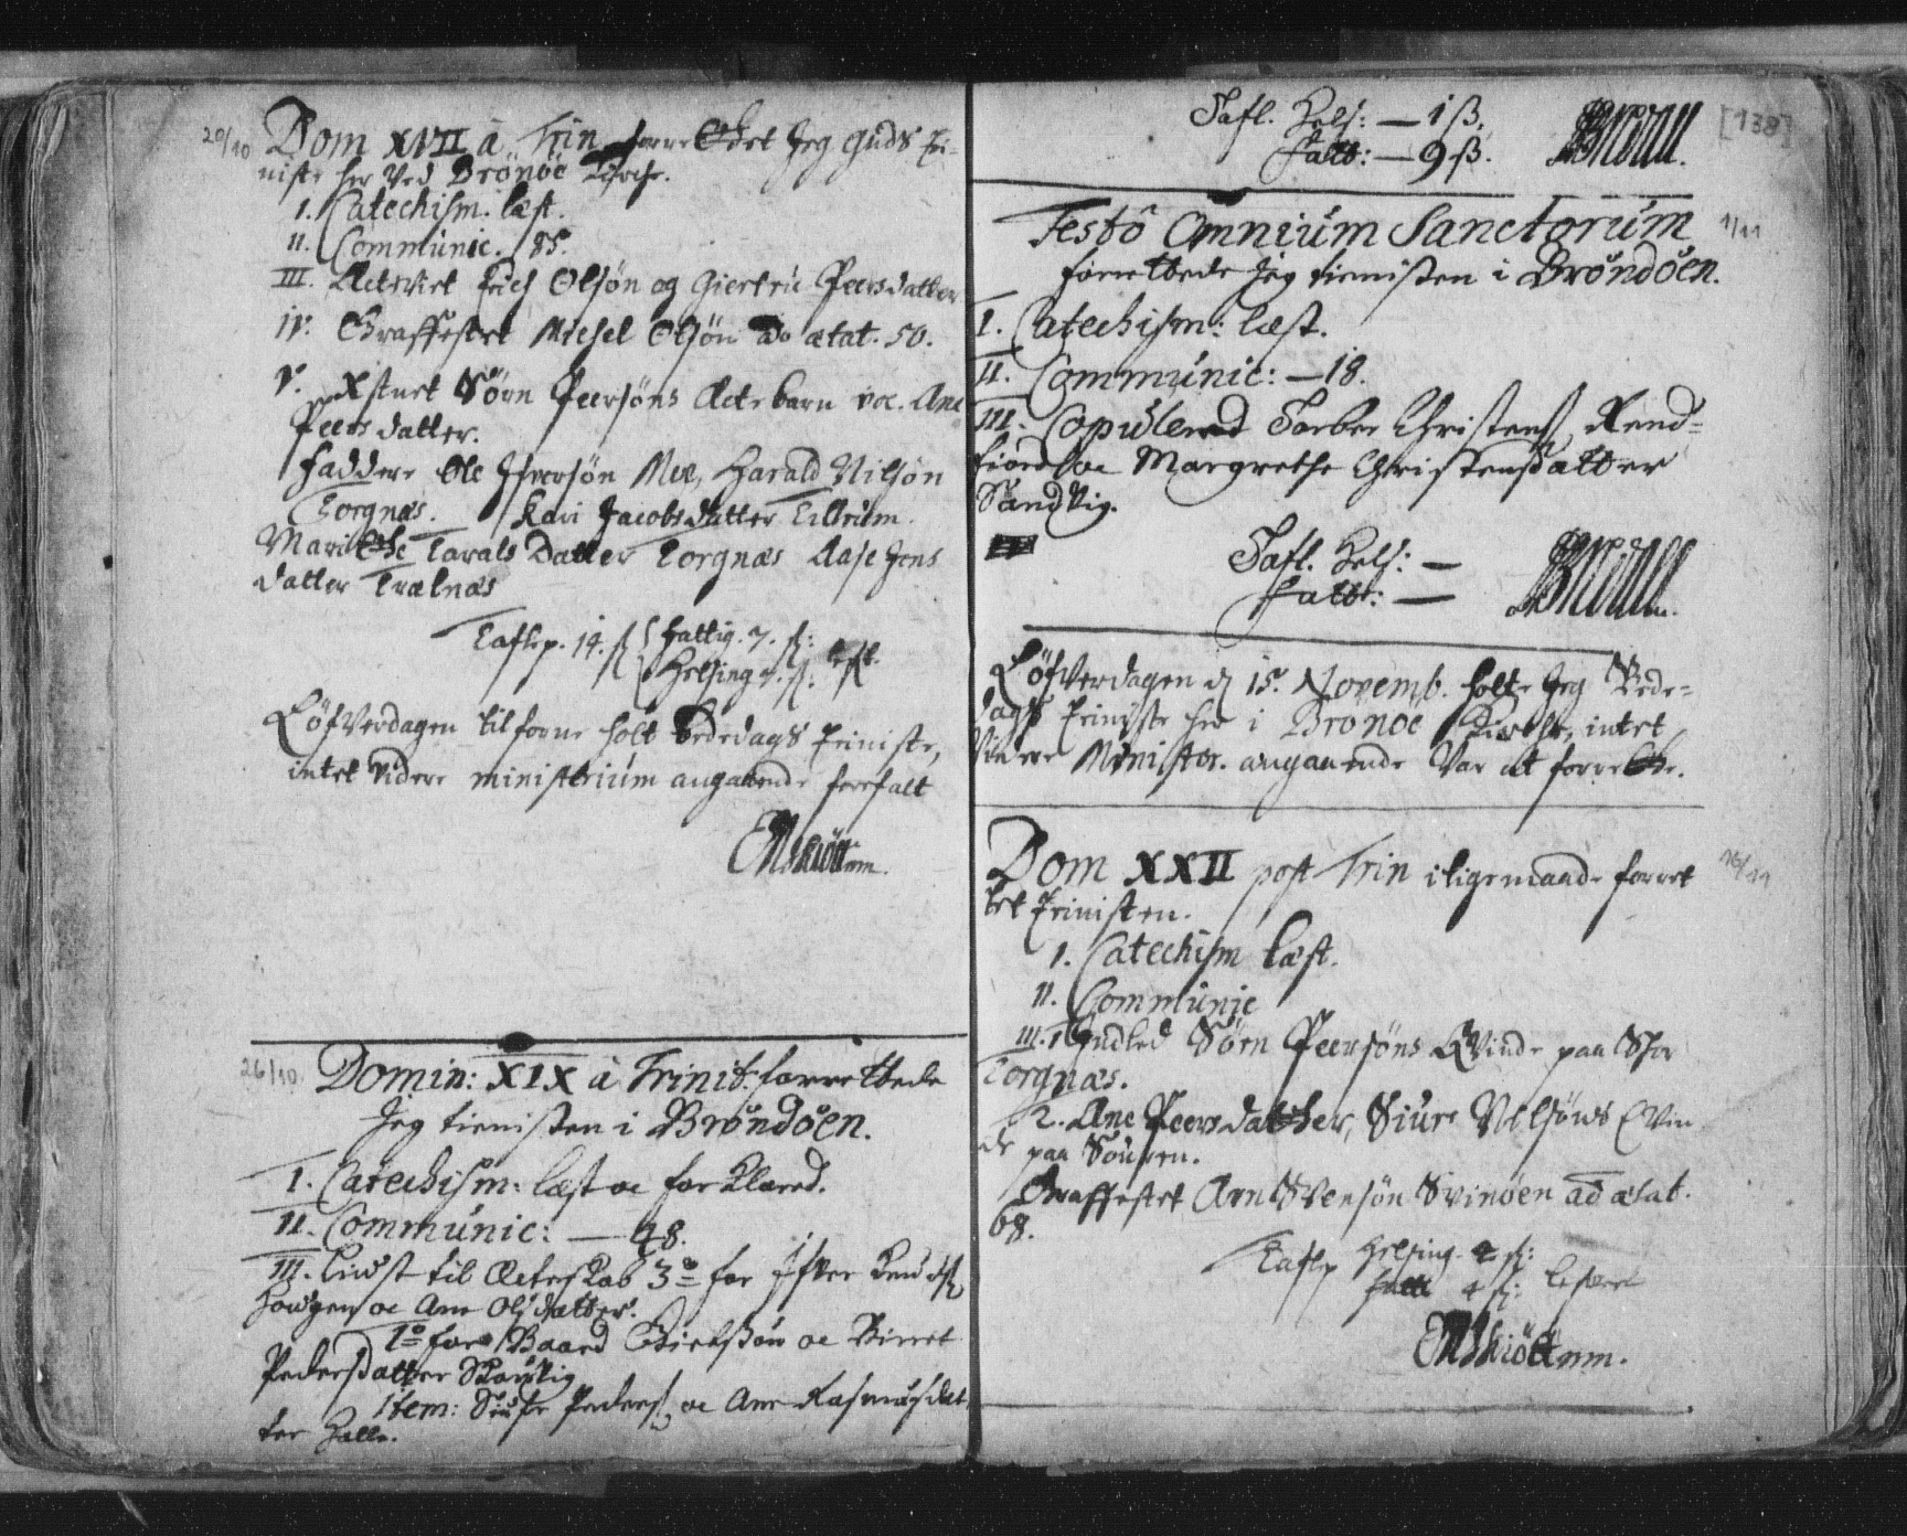 20/10 Dom XVII à Trin forrettet Jeg Guds Tie-
niste her ved Brönöe Kirche.
1. Catechism. læst.
11. Communic. 85.
III. Ectviet Erich Olsön og Giertru Peersdatter
iv. Graffestet Michel Olsön ætat. 50.
V. Xstnet Sörn Peersöns Ectebarn voc. Ane
Peersdatter.
Faddere Ole Ifversön Moe, Harald Nilsön
Torgnæs. Kari Jacobsdatter Tilrum.
Marithe Taralsdatter Torgnæs Aase Jens
datter Trælnæs
Taflep. 14. ß Fattig. 7. ß:
Helsing 7. ß:
Löfverdagen tilforne holt bededags tieniste,
intet videre ministerium angaaende forefalt
26/10. Domin: XIX à Trinit: forrettede
Jeg tienisten i Bröndöen.
I. Catechism: læst oc forklared.
II. Communic: — 48.
III. Liust til Ecteskab 3º for Ifver
oc Ane Olsdatter.
1º for Baard oc Birret
Pedersdatter
Item: Peders: oc Ane Rasmusdat
ter
Tafl. Hels: — 1 ß. [138]
Fatt: — 9 ß.
Festo Omnium Sanctorum 1/11
forrettede Jeg tienisten i Bröndöen.
I. Catechism: læst.
II. Communic: — 18.
III. Copulered Torber Christens: Rend-
fiord oc Margrethe Christensdatter
Sandvig.
Tafl. Hels: —
Fatt: —
Löfverdagen d 15. Novemb. holte Jeg Bede-
dags tieniste her i Brönöe Kirche, intet
videre Minister. angaaende var at forrette.
Dom XXII post Trin iligemaade forret 16/11
tet tienisten.
1. Catechism læst.
11. Communic
III. 1 Indled Sörn Peersöns Qvinde paa Stor
Torgnæs.
2. Ane Peersdatter, Siure Nilsöns Qvin
de paa
Graffestet Arn Svensön Svinöen ad ætat.
68.
Taflp Helsing. 4 ß:
fatt 4 ß: lefveret